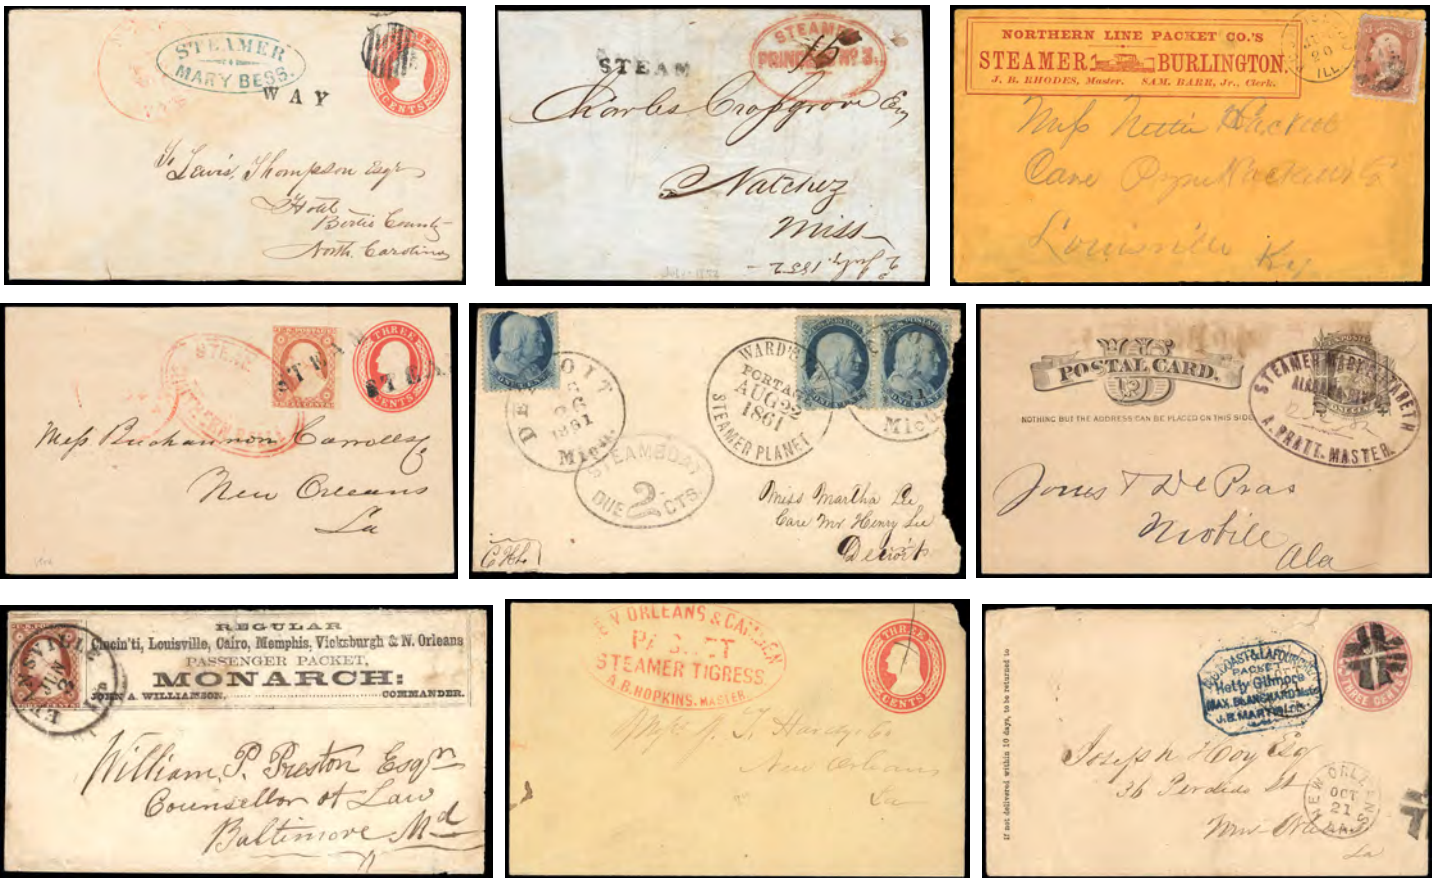 STEAMER
MARY BESS.
WAY
THREE
CENTS
To Lewis Thompson Esqr
Hotel
Bertie County
North Carolina
STEAM
STEAMER
PRINCESS No 3.
15
Charles Crosgrove Esq
Natchez
Miss
2d July, 1852
NORTHERN LINE PACKET CO.'S
STEAMER BURLINGTON.
J. B. RHODES, Master. SAM. BARR, Jr., Clerk.
ILL
Miss Nettie Hackett
Care
Louisville Ky
STEAM
STEAM
THREE
CENTS
Mess Buchannon Carroll &
New Orleans
La
ONE CENT
DETROIT
1861
Mich.
STEAMBOAT
DUE 2 CTS.
WARD'S
PORTAGE
AUG 22
1861
STEAMER PLANET
Mich
Miss Martha Lee
Care Mr. Henry Lee
Detroit
U.S.
POSTAL CARD.
NOTHING BUT THE ADDRESS CAN BE PLACED ON THIS SIDE
ONE CENT
STEAMER MARY ELIZABETH
ALABAMA RIVER
A. PRATT. MASTER.
Jones & De Pras
Mobile
Ala
EVANSVILLE
REGULAR
Cincin'ti, Louisville, Cairo, Memphis, Vicksburgh & N. Orleans
PASSENGER PACKET,
MONARCH:
JOHN A. WILLIAMSON, COMMANDER.
William P. Preston Esqr
Counsellor at Law
Baltimore Md
NEW ORLEANS & CAMDEN
PACKET
STEAMER TIGRESS.
A. B. HOPKINS, MASTER.
THREE
CENTS
New Orleans
La
If not delivered within 10 days, to be returned to
COAST & LAFOURCHE
PACKET
Hetty Gilmore
MAX. BLANCHARD Master
J. B. MARTIN
THREE CENTS
Joseph Hoy Esq
36 Perdido St
New Orleans
La
NEW ORLEANS
OCT
21
LA.